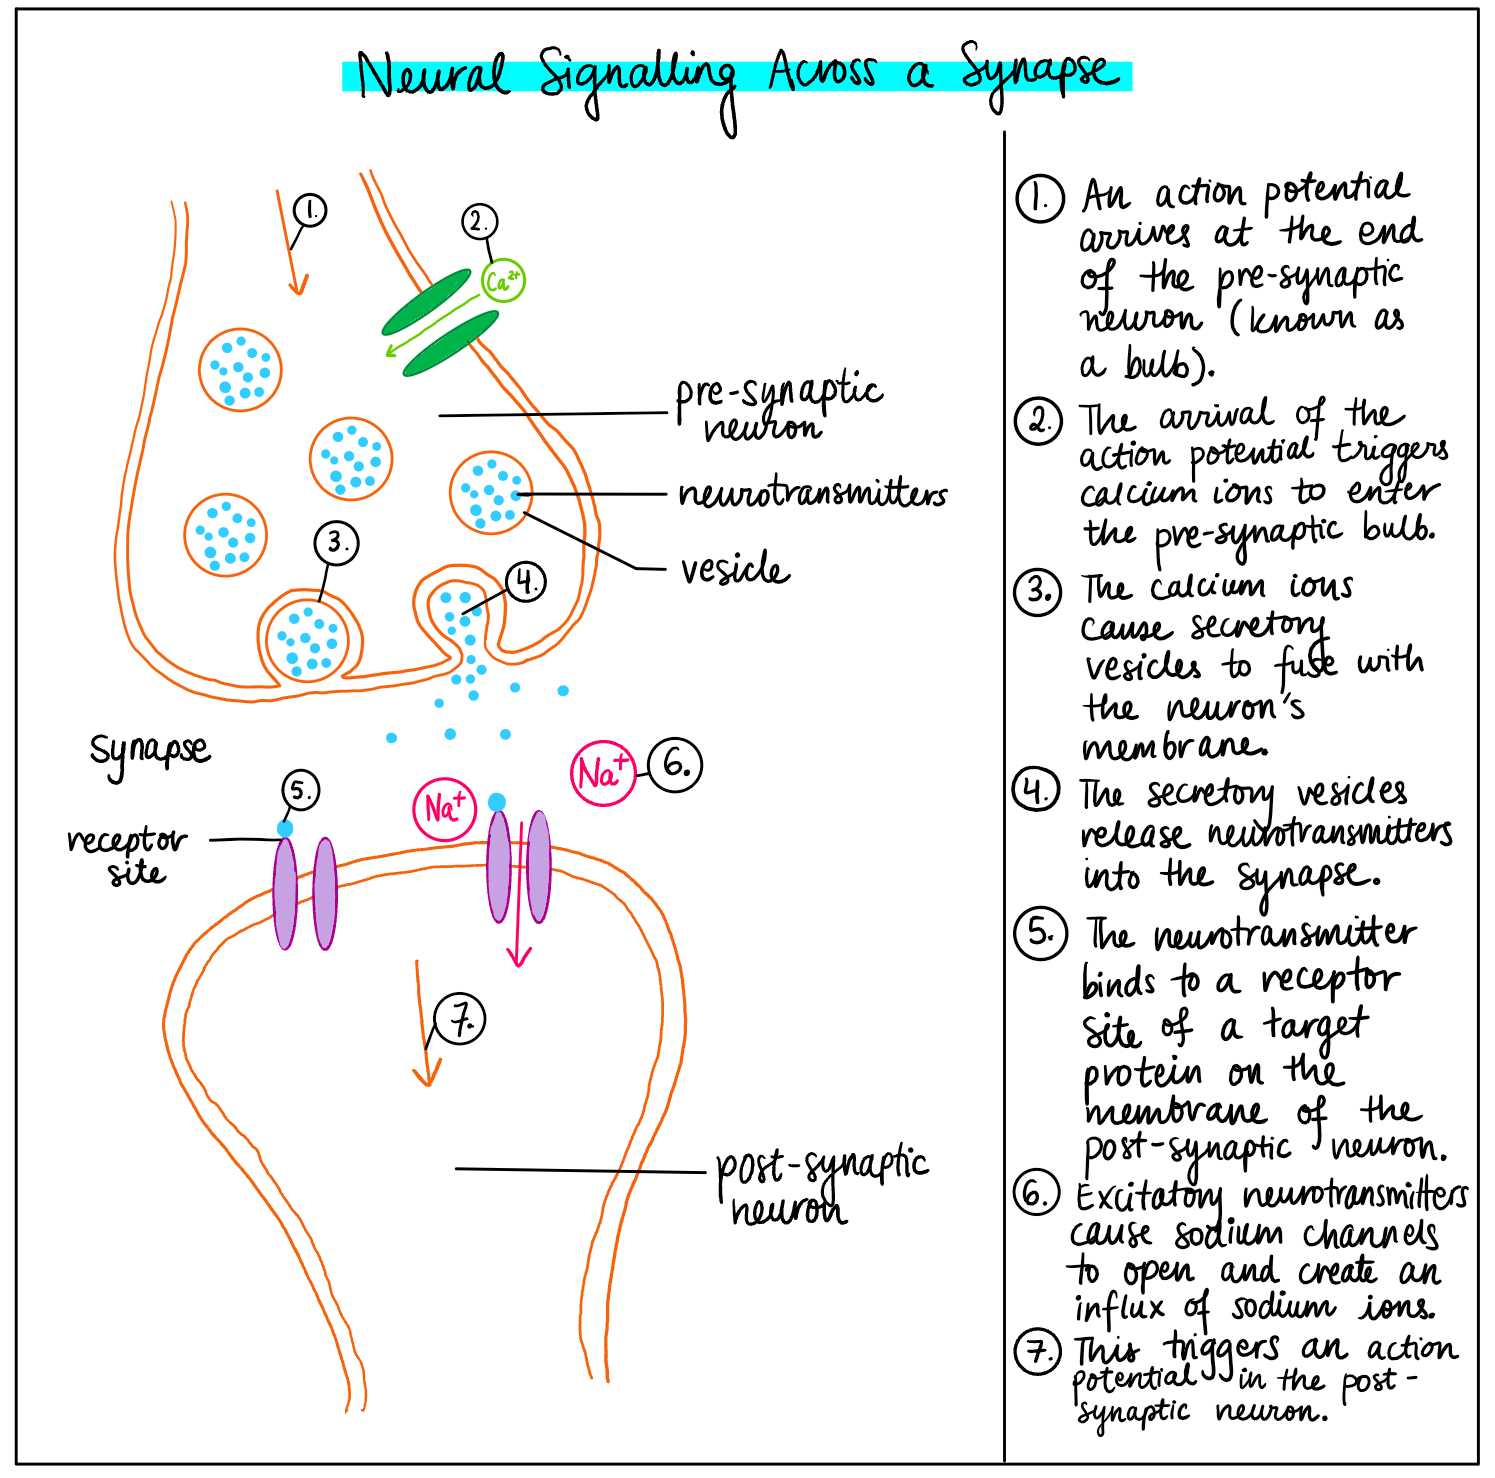 Neural Signalling Across a Synapse
1.
2.
Ca²⁺
pre-synaptic
neuron
neurotransmitters
3.
vesicle
4.
Synapse
Na⁺
6.
5.
Na⁺
receptor
site
7.
post-synaptic
neuron
1. An action potential
arrives at the end
of the pre-synaptic
neuron (known as
a bulb).
2. The arrival of the
action potential triggers
calcium ions to enter
the pre-synaptic bulb.
3. The calcium ions
cause secretory
vesicles to fuse with
the neuron's
membrane.
4. The secretory vesicles
release neurotransmitters
into the synapse.
5. The neurotransmitter
binds to a receptor
site of a target
protein on the
membrane of the
post-synaptic neuron.
6. Excitatory neurotransmitters
cause sodium channels
to open and create an
influx of sodium ions.
7. This triggers an action
potential in the post-
synaptic neuron.